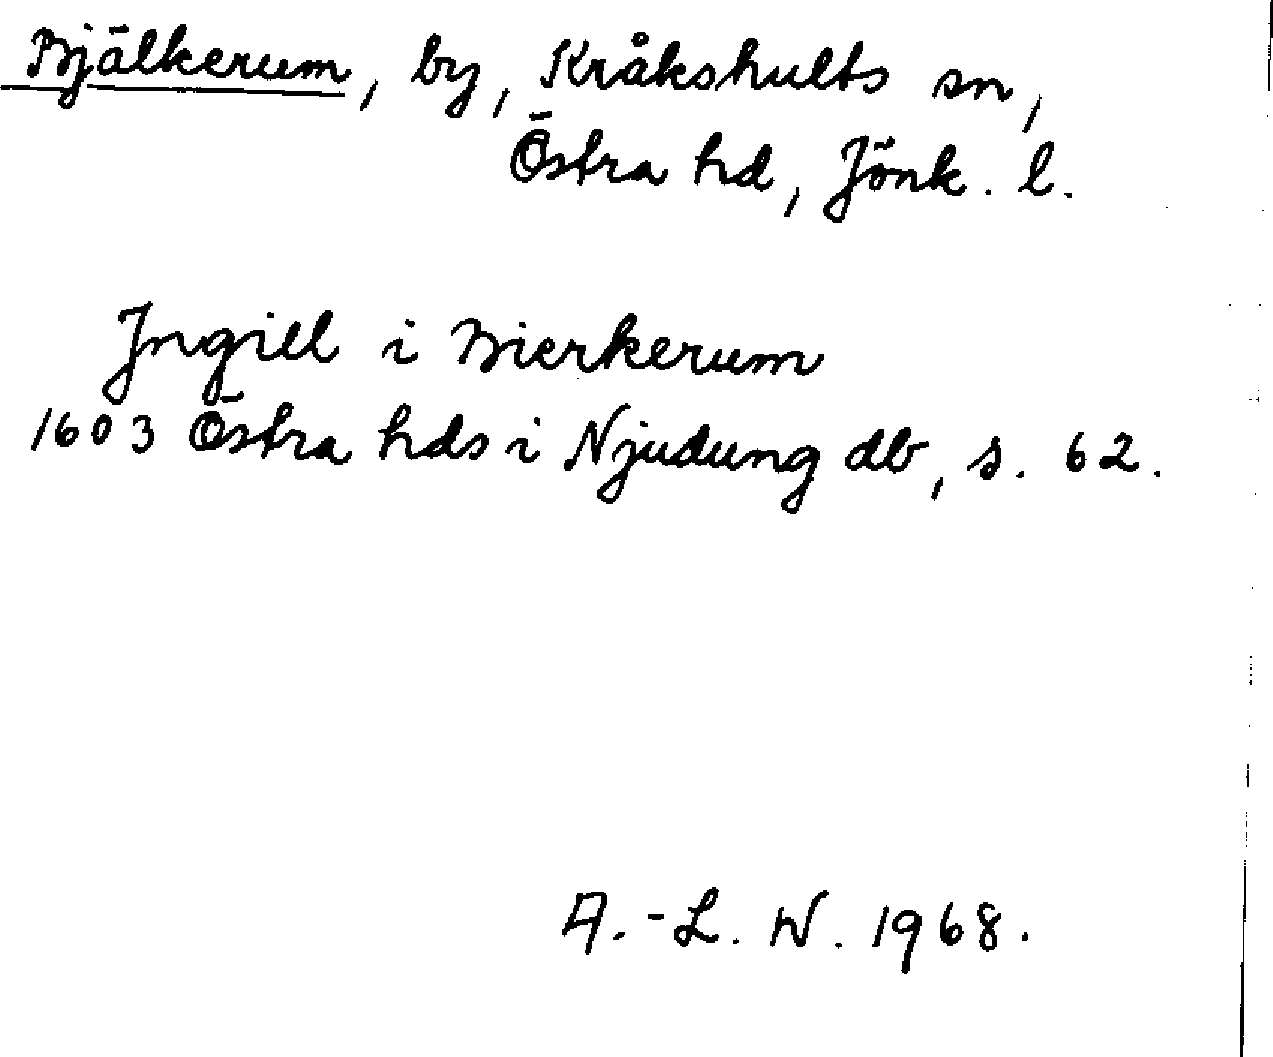 Bjälkerum, by, Kråkshults sn,
Östra hd, Jönk. l.
Ingiell i Bierkerum
1603 Östra hds i Njudung db, s. 62.
A.-L. W. 1968.